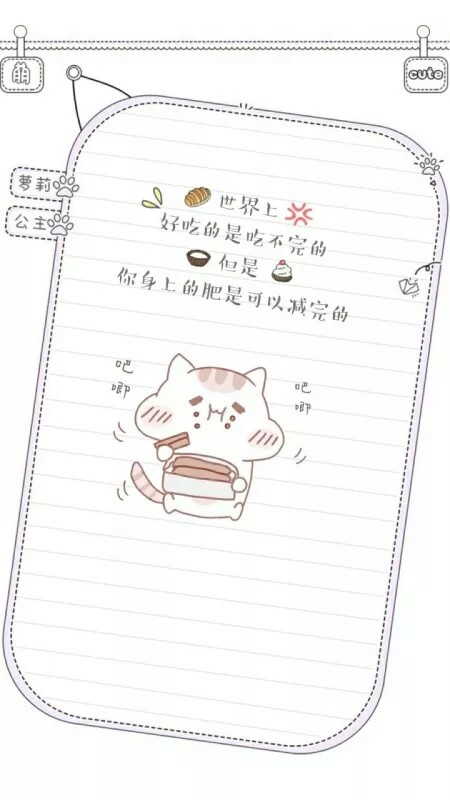 萌
cute
萝莉
公主
世界上
好吃的是吃不完的
但是
你身上的肥是可以减完的
吧唧
吧唧